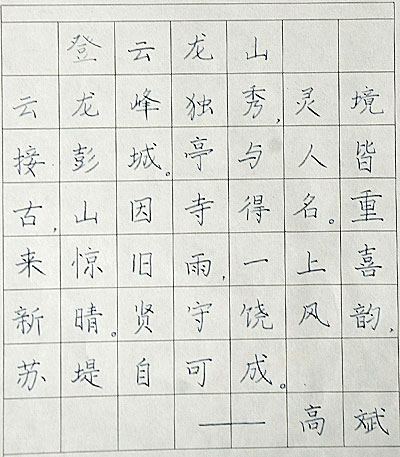 登云龙山
云龙峰独秀,灵境
接彭城。亭与人皆
古,山因寺得名。重
来惊旧雨,一上喜
新晴。贤守饶风韵,
苏堤自可成。
——高斌